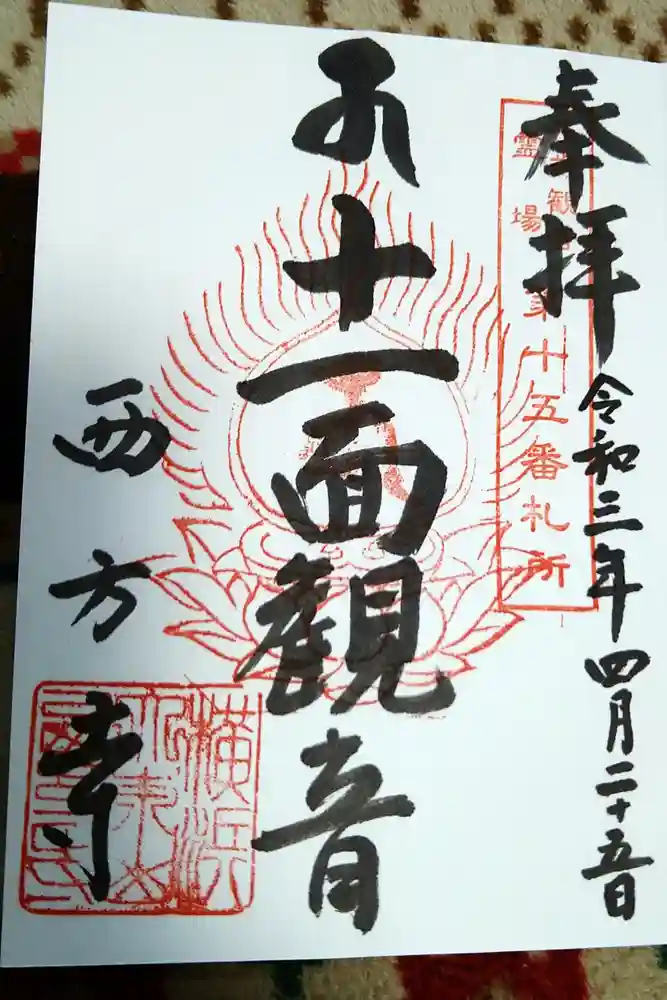 奉拝
令和三年四月二十五日
観音
霊場
第十五番札所
十一面観音
西方寺
横浜